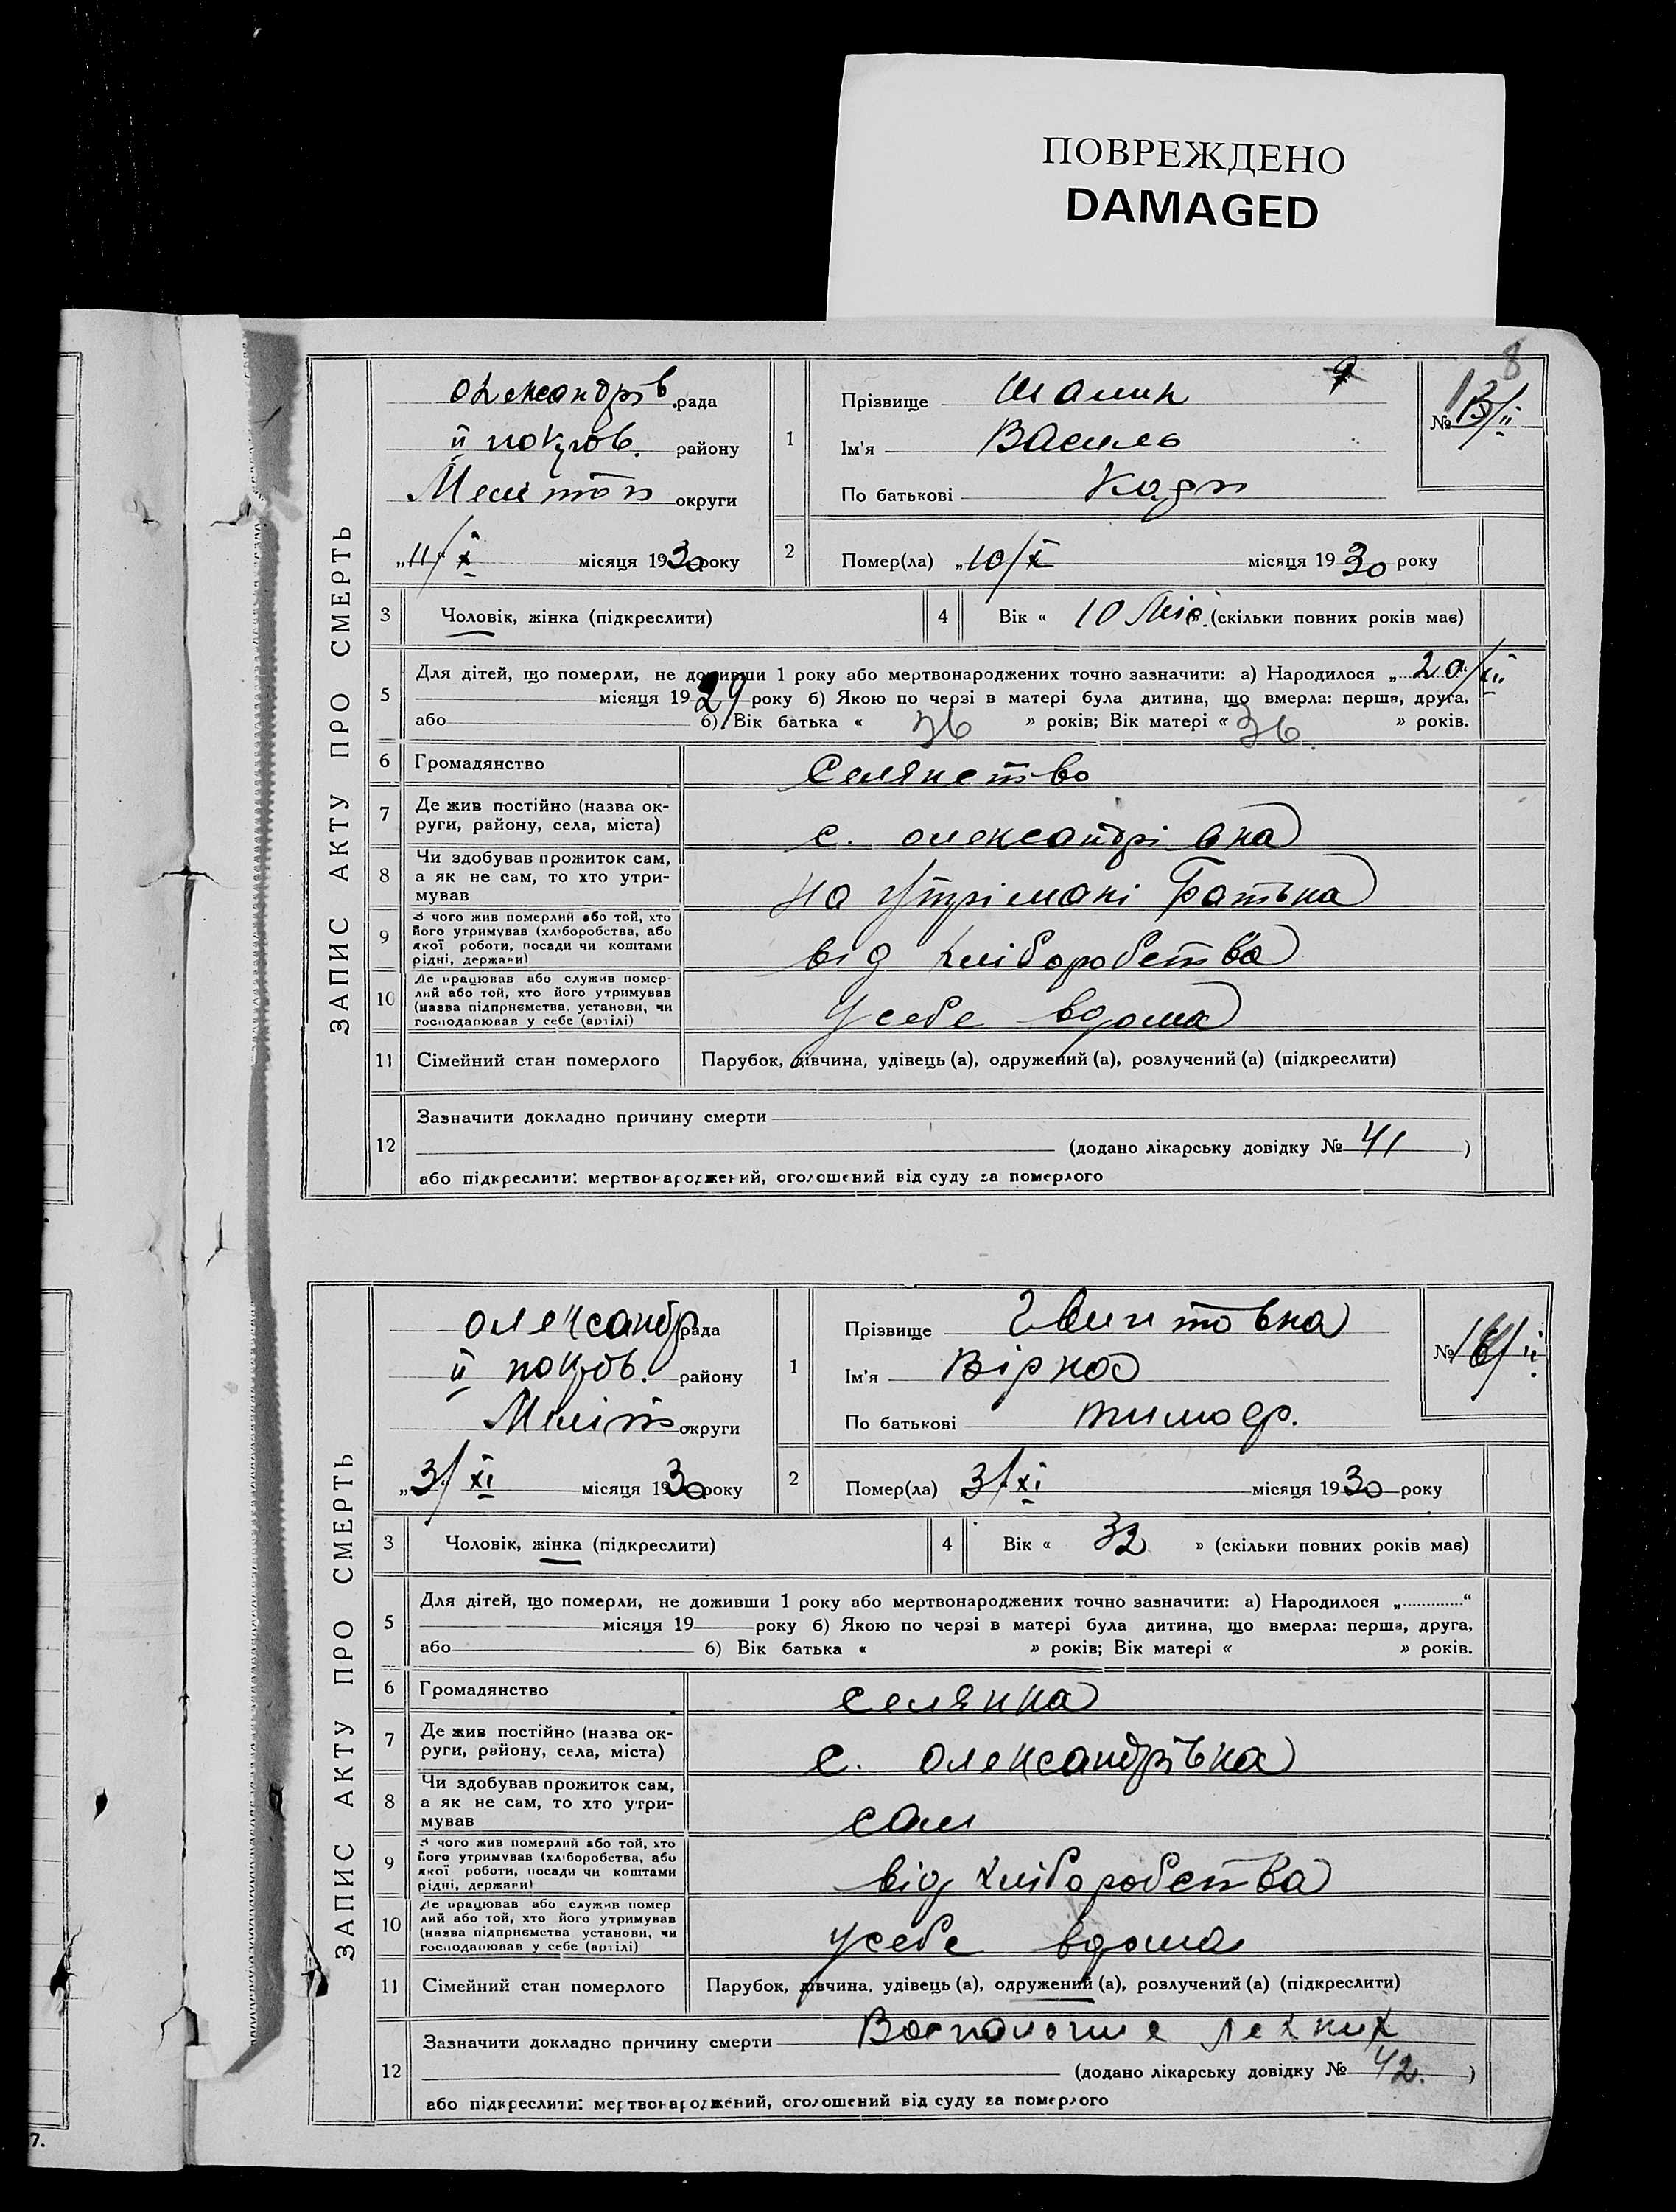 ПОВРЕЖДЕНО
DAMAGED
8
ЗАПИС АКТУ ПРО СМЕРТЬ
Олександрів. рада
ІІ покров. району
Мелітоп округи
„11“/X місяця 1930 року
1
Прізвище Шамин
Ім'я Василь
По батькові Кадп
№
2
Помер(ла) „10/X місяця 1930 року
3 Чоловік, жінка (підкреслити)
4 Вік « 10 Міс. (скільки повних років має)
5
Для дітей, що померли, не доживши 1 року або мертвонароджених точно зазначити: а) Народилося „20“/XII
місяця 1929 року б) Якою по черзі в матері була дитина, що вмерла: перша, друга,
або б) Вік батька « 36 » років; Вік матері « 36 » років.
6 Громадянство Селянство
7 Де жив постійно (назва ок-
руги, району, села, міста) с. Олександрівка
8 Чи здобував прожиток сам,
а як не сам, то хто утри-
мував на утрімані батька
9 З чого жив померлий або той, хто
його утримував (хліборобства, або
якої роботи, посади чи коштами
рідні, держави) від хліборобства
10 Де працював або служив помер-
лий або той, хто його утримував
(назва підприємства, установи, чи
господарював у себе (артілі) усебе вдома
11 Сімейний стан померлого Парубок, дівчина, удівець (а), одружений (а), розлучений (а) (підкреслити)
12
Зазначити докладно причину смерти
(додано лікарську довідку № 41 )
або підкреслити: мертвонароджений, оголошений від суду за померлого
ЗАПИС АКТУ ПРО СМЕРТЬ
Олександр рада
ІІ покров. району
Меліт округи
„3“/XI місяця 1930 року
1
Прізвище Гвинтовка
Ім'я Вірка
По батькові Тимоф.
№
2
Помер(ла) 3/XI місяця 1930 року
3 Чоловік, жінка (підкреслити)
4 Вік « 32 » (скільки повних років має)
5
Для дітей, що померли, не доживши 1 року або мертвонароджених точно зазначити: а) Народилося „ “
місяця 19 року б) Якою по черзі в матері була дитина, що вмерла: перша, друга,
або б) Вік батька « » років; Вік матері « » років.
6 Громадянство селянка
7 Де жив постійно (назва ок-
руги, району, села, міста) с. Олександрівка
8 Чи здобував прожиток сам,
а як не сам, то хто утри-
мував сам
9 З чого жив померлий або той, хто
його утримував (хліборобства, або
якої роботи, посади чи коштами
рідні, держави) від хліборобства
10 Де працював або служив помер
лий або той, хто його утримував
(назва підприємства установи, чи
господарював у себе (артілі) усебе вдома
11 Сімейний стан померлого Парубок, дівчина, удівець (а), одружений (а), розлучений (а) (підкреслити)
12
Зазначити докладно причину смерти Воспаление лехких
(додано лікарську довідку № 42. )
або підкреслити: мертвонароджений, оголошений від суду за померлого
7.